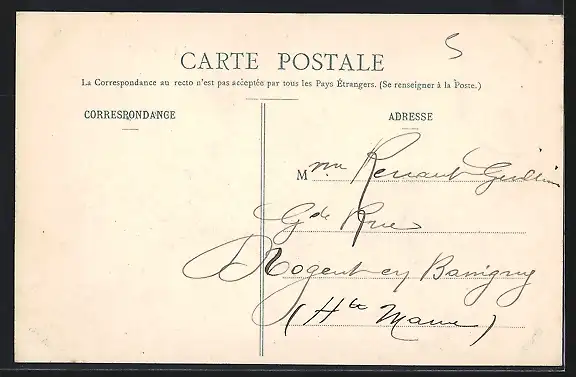 5
CARTE POSTALE
La Correspondance au recto n'est pas acceptée par tous les Pays Étrangers. (Se renseigner à la Poste.)
CORRESPONDANCE
ADRESSE
Mme Renaut Guillin
Gde Rue
Nogent en Bassigny
(Hte Marne)